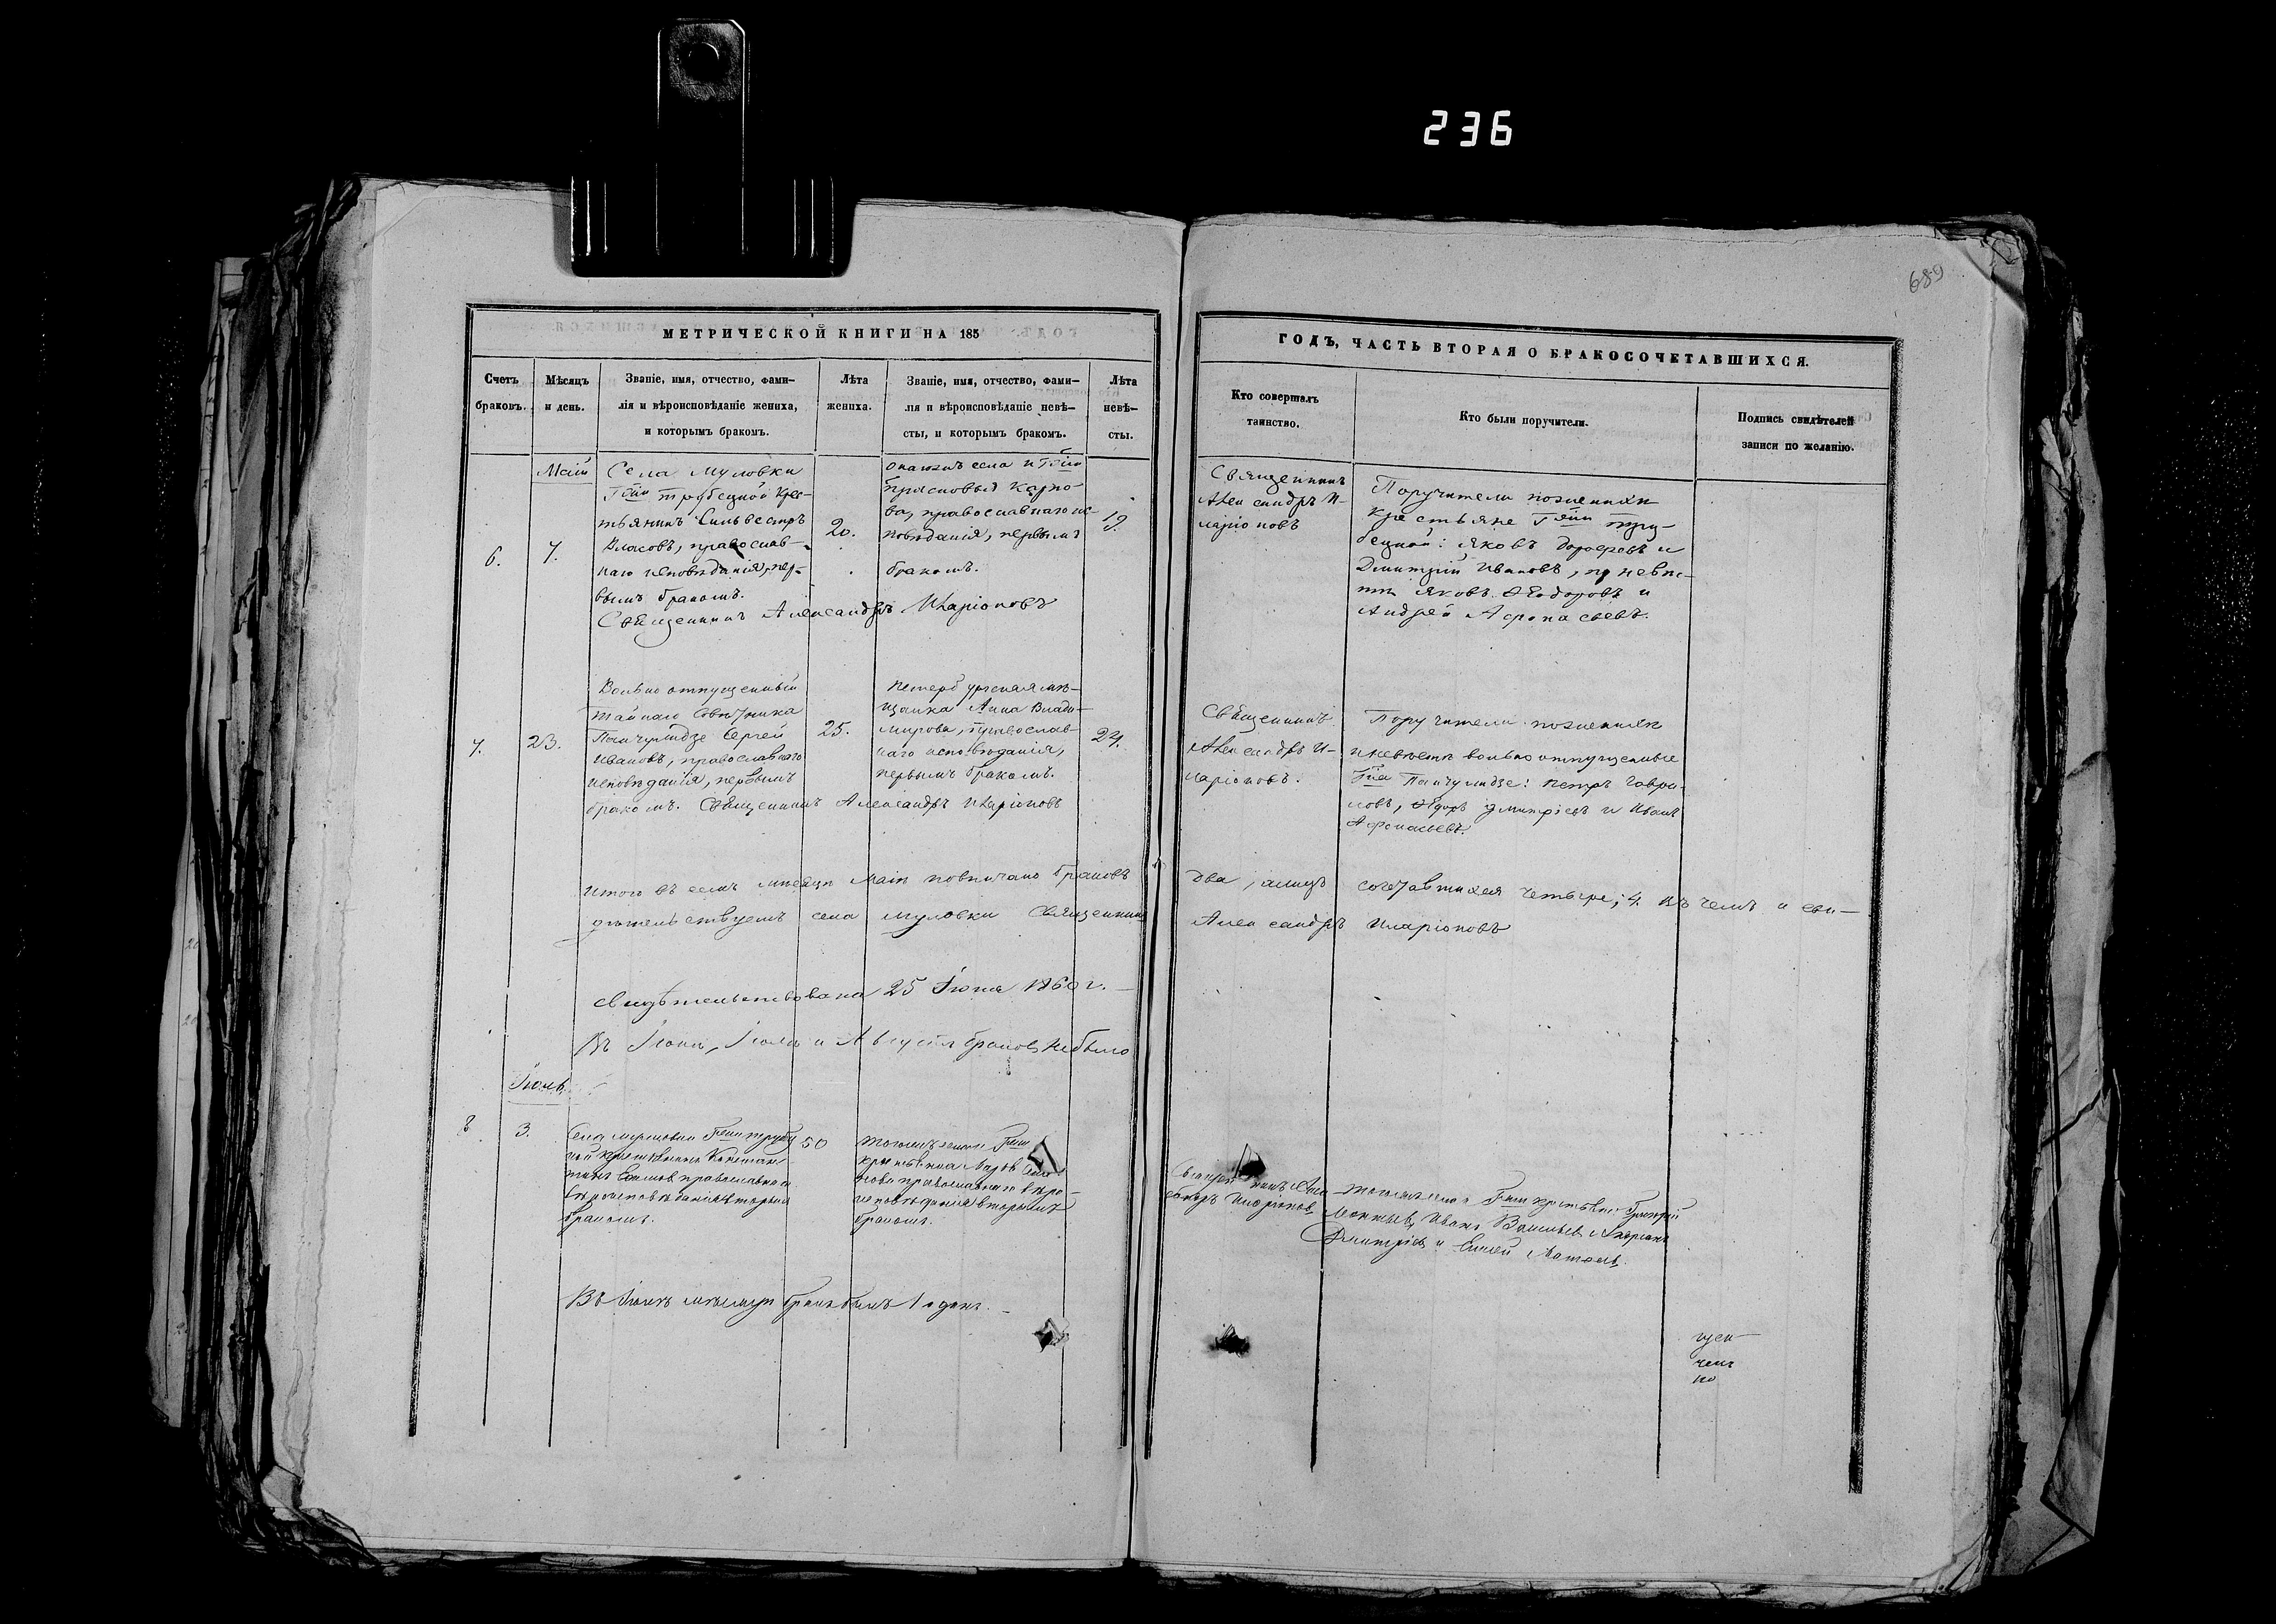 236
689
МЕТРИЧЕСКОЙ КНИГИ НА 185
ГОДЪ, ЧАСТЬ ВТОРАЯ О БРАКОСОЧЕТАВШИХСЯ.
Счетъ
браковъ.
Мѣсяцъ
и день.
Званіе, имя, отчество, фами-
лія и вѣроисповѣданіе жениха,
и которымъ бракомъ.
Лѣта
жениха.
Званіе, имя, отчество, фами-
лія и вѣроисповѣданіе невѣ-
сты, и которымъ бракомъ.
Лѣта
невѣ-
сты.
Кто совершалъ
таинство.
Кто были поручители.
Подпись свидѣтелей
записи по желанію.
6.
Маій
7.
Села Муловки
Гжи трубецкой Крес-
тьянинъ Сильвестръ
Власовъ, православ-
наго исповѣданія, пер-
вымъ бракомъ.
20.
села и Гжи
Прасковья Карпо-
ва, православнаго ис-
повѣданія, первымъ
бракомъ.
19.
Священникъ Александръ Иларіоновъ
Священникъ
Александръ И-
ларіоновъ
Поручители по женихѣ
крестьяне Гжи тру-
бецкой: Яковъ Дорофѣевъ и
Дмитрій Ивановъ, по невѣс-
тѣ Яковъ Ѳеодоровъ и
Андрей Афонасьевъ.
7.
23.
Вольно отпущенный
тайнаго Совѣтника
Панчулидзе Сергей
Ивановъ, православнаго
исповѣданія, первымъ
бракомъ. Священникъ Александръ Иларіоновъ
25.
Петербургская мѣ-
щанка Анна Влади-
мирова, православ-
наго исповѣданія,
первымъ бракомъ.
24.
Священникъ
Александръ И-
ларіоновъ.
Поручители по женихѣ
и невѣстѣ вольноотпущенные
Гна Панчулидзе: Петръ Гаври-
ловъ, Ѳедоръ Дмитріевъ и Иванъ
Афонасьевъ.
Итого въ семъ мѣсяцѣ Маіѣ повѣнчано браковъ два, а лицъ сочетавшихся четыре; 4. въ чемъ и сви-
дѣтельствуемъ села Муловки Священникъ Александръ Иларіоновъ
Свидѣтельствована 25 Іюня 1860 г.
Въ Іюнѣ, Іюлѣ и Августѣ браковъ не было
Іюль
8
3.
Села Муловки Гжи трубец
кой крестьянинъ Констан
тинъ православнаго
вѣроисповѣданія вторымъ
бракомъ.
50
тогожъ села Гжи
крестьянка
православнаго вѣро-
исповѣданія вторымъ
бракомъ.
Священникъ Алек
сандръ Иларіоновъ
тогожъ села Гжи крестьяне Григорій
Иванъ Васильевъ
Дмитріевъ и
Въ Іюлѣ мѣсяцѣ бракъ былъ 1 одинъ.
щен
чен
но